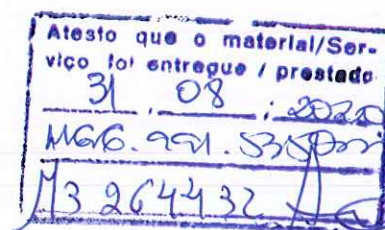 Atesto que o material/Ser-
viço foi entregue / prestado
31 . 08 ; 2020
M3 264432